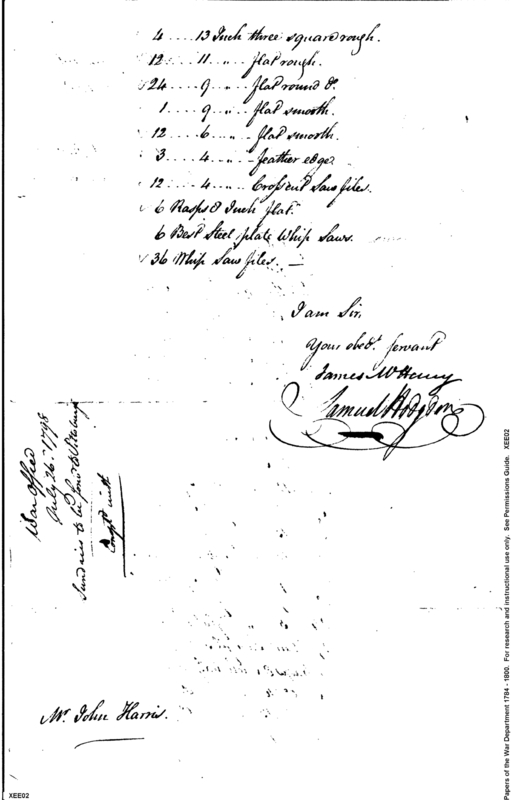 4 .... 13 Inch three square rough.
12 .... 11 .. " .. flat rough.
24 .... 9 .. " .. flat round do.
1 .... 9 .. " .. flat smooth.
12 .... 6 .. " .. flat smooth.
3 .... 4 .. " .. feather edge
12 .... 4 .. " .. Crosscut Saw files.
6 Rasps 8 Inch flat.
6 Best Steel plate Whip Saws.
36 Whip Saw files. —
I am Sir,
Your obedt. servant
James McHenry
Samuel Hodgdon
War Office
July 26th. 1798
Sundries to be forwd. to Pittsburg
Compd. with
Mr. John Harris.
XEE02
Papers of the War Department 1784 - 1800. For research and instructional use only. See Permissions Guide. XEE02